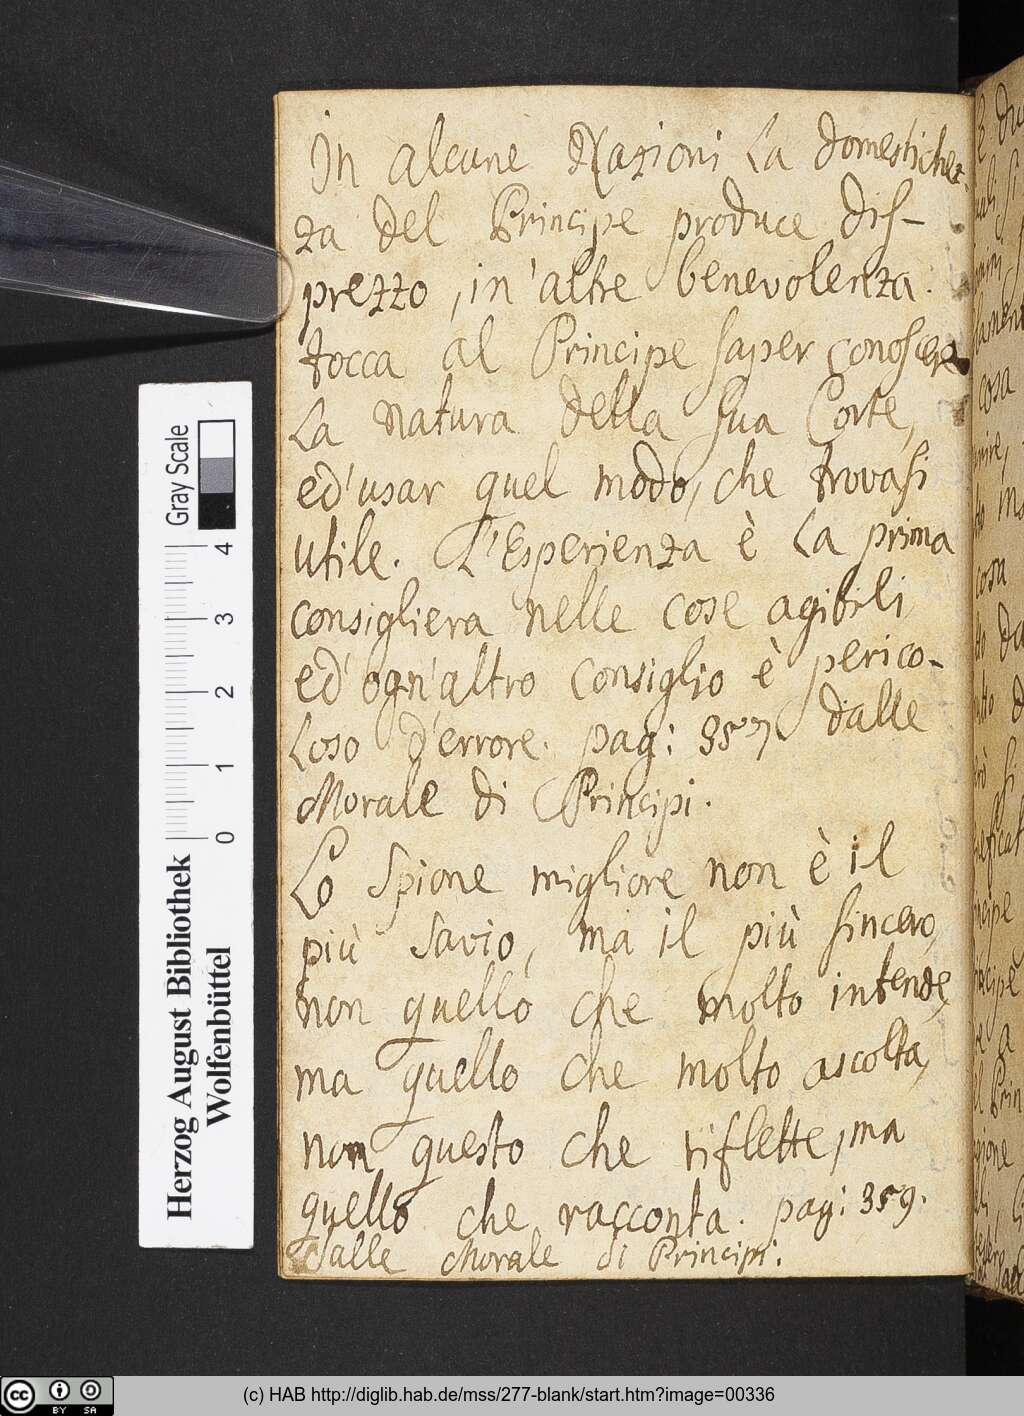 In alcune Nazioni la domestichez-
za del Principe produce dis-
prezzo, in'altre benevolenza.
tocca al Principe saper conoscere
la natura della sua Corte,
ed'usar quel modo, che trovasi
utile. L'Esperienza è la prima
consigliera nelle cose agibili
ed'ogn'altro consiglio è perico-
loso d'errore. pag: 357 dalle
Morale di Principi.
Lo Spione migliore non è il
più Savio, ma il più sincero,
non quello che molto intende,
ma quello che molto ascolta,
non questo che riflette, ma
quello che racconta. pag: 359.
dalle Morale di Principi.
Gray Scale
0 1 2 3 4
Herzog August Bibliothek
Wolfenbüttel
cc BY SA
(c) HAB http://diglib.hab.de/mss/277-blank/start.htm?image=00336